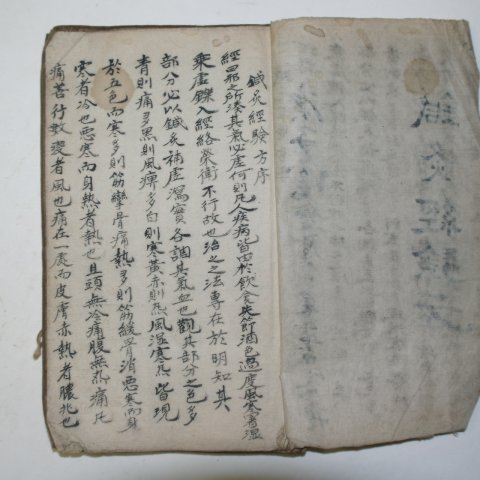 鍼灸經驗方序
經曰邪之所湊其氣必虛何則凡人疾病皆由於飮食失節酒色過度風寒暑濕
乘虛鑠入經絡榮衛不行故也治之之法專在於明知其
部分必以鍼灸補虛瀉實各調其氣血也觀其部分之色多
靑則痛多黑則風痹多白則寒黃赤則熱風濕寒熱皆現
於五色而寒多則筋攣骨痛熱多則筋緩骨消惡寒而身
寒者冷也惡寒而身熱者熱也且頭無冷痛腹無熱痛凡
痛苦行数変者風也痛在一處而皮膚赤熱者膿兆也
鍼灸經驗方